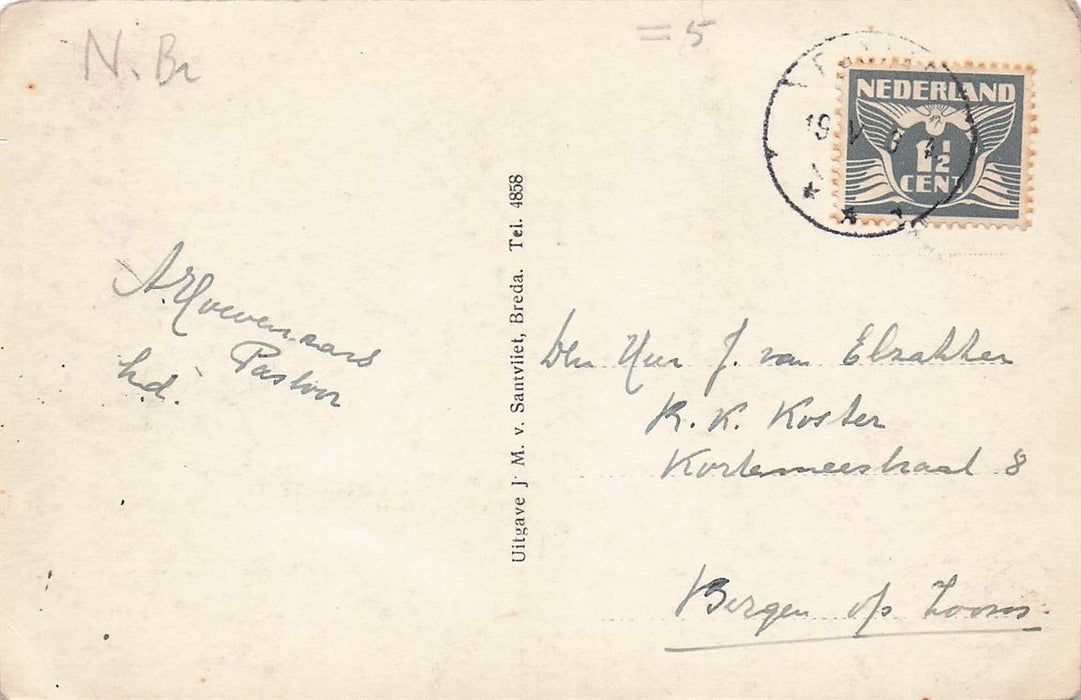 N. Br
= 5
NEDERLAND
1½
CENT
19 V
A. Hoevenaars
Pastoor
h.d.
Uitgave J. M. v. Santvliet, Breda. Tel. 4858
Den Heer J. van Elzakker
R. K. Koster
Kortemeestraat 8
Bergen op Zoom.